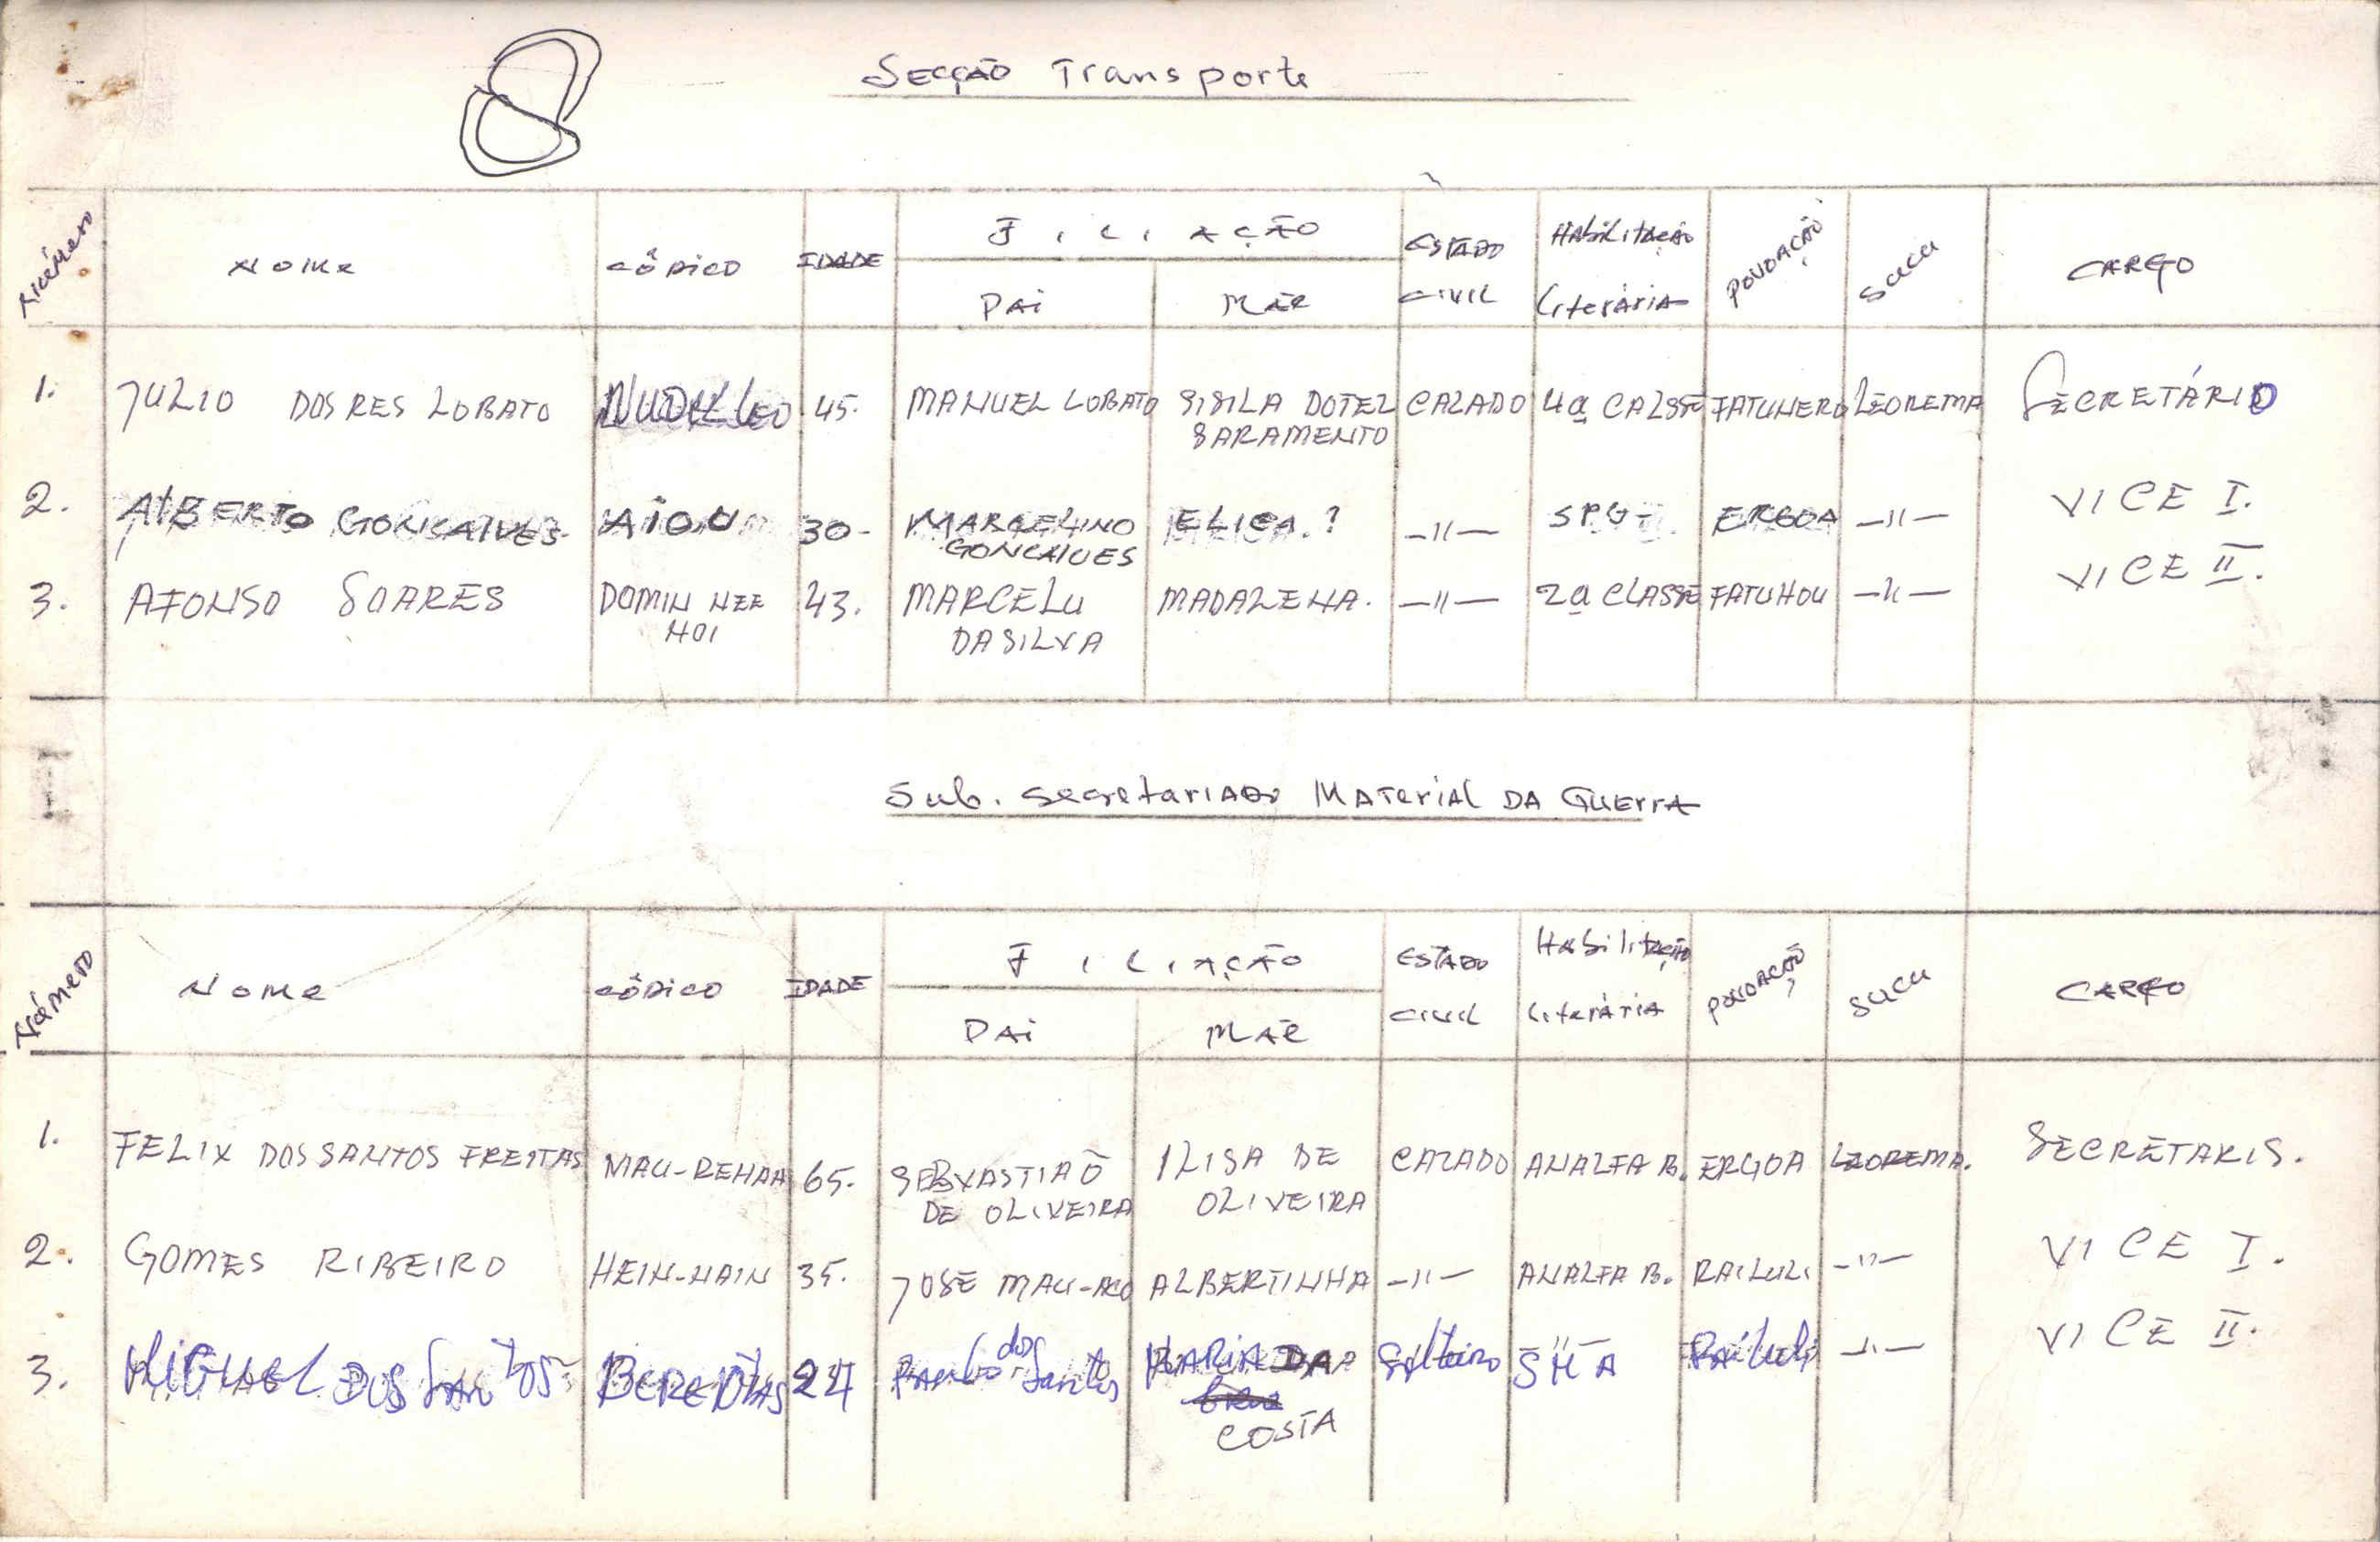 8
Secção Transporte
Número Nome Códico IDADE Filiação ESTADO CIVIL Habilitação Literária POVOAÇÃO Sucu CARGO
PAi MÃE
1. JULIO DOS RES LOBATO 45. MANUEL LOBATO SISILA DOTEL SARAMENTO CAZADO 4ª CALSSE FATUNERO LEOREMA SECRETÁRIO
2. ALBERTO GONCALVES AIOU 30- MARCELINO GONCALVES ELICA.? -"- SPG- ERGOA -"- VICE I.
3. AFONSO SOARES DOMIN NEE HOI 43. MARCELU DASILVA MADALENA. -"- 2ª CLASSE FATUHOU -"- VICE II.
Sub. Secretariado MATERiAL DA GUERRA
Número Nome Códico IDADE Filiação ESTADO CIVIL Habilitação Literária POVOAÇÃO Sucu CARGO
PAi MÃE
1. FELIX DOS SANTOS FREITAS MAU-REHAA 65. SEBVASTIAÕ DE OLIVEIRA ILISA DE OLIVEIRA CAZADO ANALFA B. ERGOA LEOREMA. SECRETARIS.
2. GOMES RIBEIRO HEIN-HAIN 35. JOSE MAU- ALBERTINHA -"- ANALFA B. RAILULI -"- VICE I.
3. MIGUEL DOS SANTOS 24 Paulo dos Santos MARIA DA COSTA Solteiro Railuli -"- VICE II.